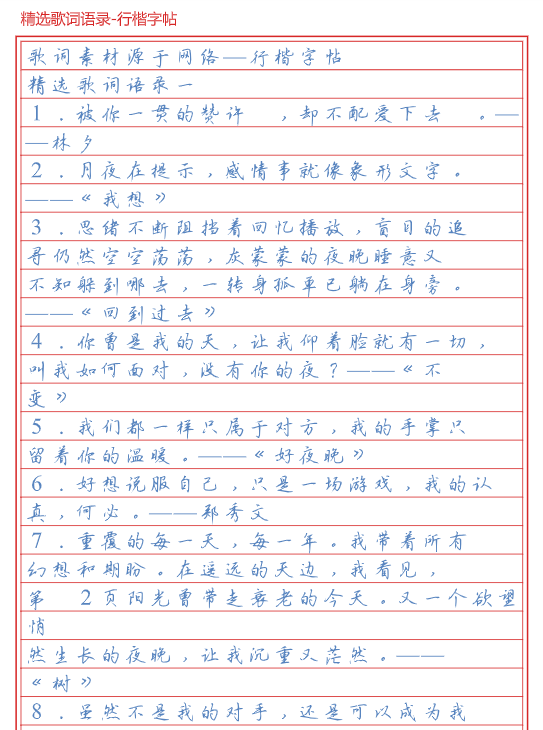 精选歌词语录-行楷字帖
歌词素材源于网络—行楷字帖
精选歌词语录一
1．被你一贯的赞许　，却不配爱下去　。—
—林夕
2．月夜在提示，感情事就像象形文字。
——《我想》
3．思绪不断阻挡着回忆播放，盲目的追
寻仍然空空荡荡，灰蒙蒙的夜晚睡意又
不知躲到哪去，一转身孤单已躺在身旁。
——《回到过去》
4．你曾是我的天，让我仰着脸就有一切，
叫我如何面对，没有你的夜？——《不
变》
5．我们都一样只属于对方，我的手掌只
留着你的温暖。——《好夜晚》
6．好想说服自己，只是一场游戏，我的认
真，何必。——郑秀文
7．重覆的每一天，每一年。我带着所有
幻想和期盼。在遥远的天边，我看见，
第　2页阳光曾带走衰老的今天。又一个欲望
悄
然生长的夜晚，让我沉重又茫然。——
《树》
8．虽然不是我的对手，还是可以成为我